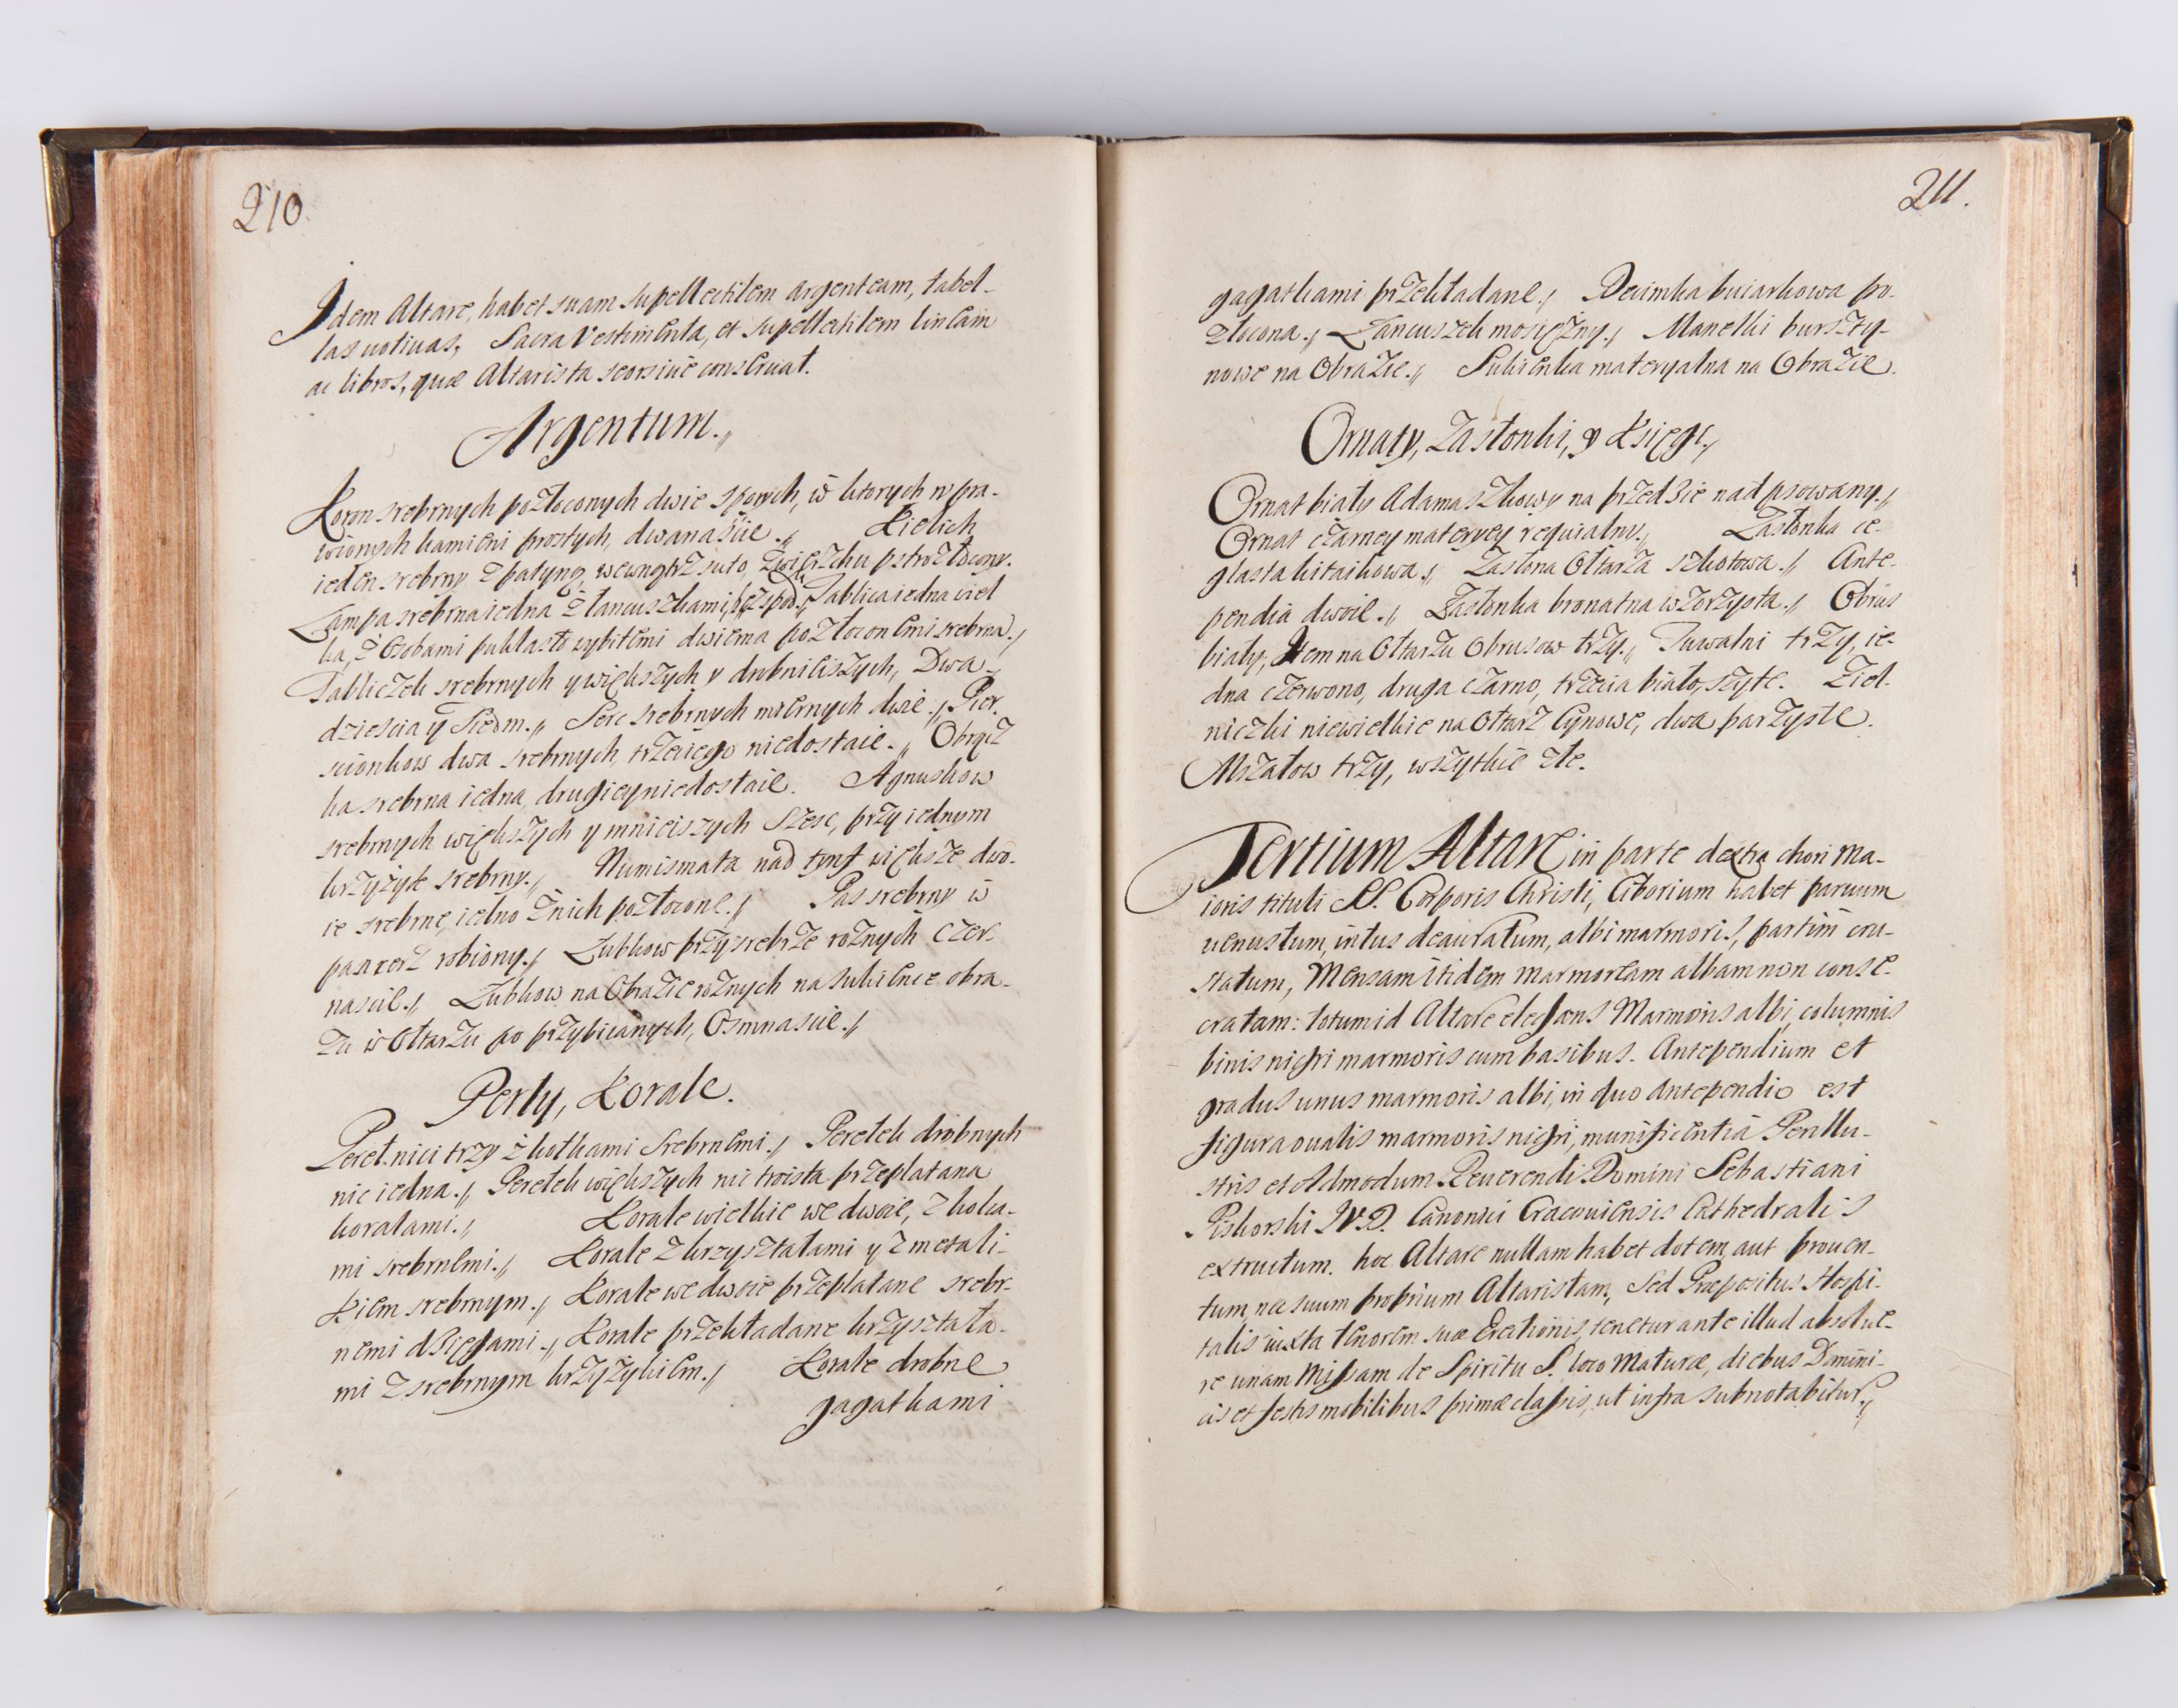 210.
Idem Altare, habet suam supellectilem argenteam, tabel-
las uotiuas, Sacra Vestimenta, et supellectilem lineam
ac libros, quæ Altarista seorsiuè conseruat.
Argentum.
Koron srebrnych pozłoconych dwie sporych, w ktorych wpra-
wionych kamieni prostych, dwanascie. Kielich
ieden srebrny z patyną, wewnątrz suto, zwierzchu pstrozłocony.
Lampa srebrna iedna z łancuszkami, Tablica iedna wiel
ka, z Osobami puklasto wybitemi dwiema pozłoconemi srebrna.
Tabliczek srebrnych y większych y drobnieiszych, Dwa
dziescia y Siedm. Serc srebrnych miernych dwie. Pier.
scionkow dwa srebrnych, trzeciego niedostaie. Obrącz
ka srebrna iedna, drugiey niedostaie. Agnuskow
srebrnych większych y mnieiszych Szesc, przy iednym
krzyżyk srebrny. Numismata nad tynf większe dwo-
ie srebrne, iedno z nich pozłocone. Pas srebrny w
pancerz robiony. Zubkow przy srebrze rożnych Czter-
nascie. Zubkow na Obrazie rożnych na sukience obra-
zu w Ołtarzu po przybicianych, Osmnascie.
Perły, Korale.
Pereł nici trzy z kotkami Srebrnemi. Perełek drobnych
nic iedna. Perełek większych nic troista przeplatana
koralami. Korale wielkie we dwoie, z kołka-
mi srebrnemi. Korale z krzyształami y z metali-
kiem srebrnym. Korale we dwoie przeplatane srebr-
nemi dzięgami. Korale przekładane krzyształa-
mi z srebrnym krzyżykiem. Korale drobne
gagatkami
211.
gagatkami przekładane. Decimka buiarkowa po-
złocona. Łancuszek mosiężny. Manelki burszty-
nowe na Obrazie. Sukienka materyalna na Obrazie.
Ornaty, Zasłonki, y Księgi.
Ornat biały Adamaszkowy na przedzie nadpsowany.
Ornat czarney materyey requialny. Zasłonka ce-
glasta kitaikowa. Zasłona Ołtarza szkotowa. Ante-
pendia dwoie. Zasłonka bronatna wzorzysta. Obrus
biały, Item na Ołtarzu Obrusow trzy. Tuwalni trzy, ie-
dna czerwono, druga czarno, trzecia biało, szyte. Ziel-
niczki niewielkie na Ołtarz Cynowe, dwa parzyste.
Mszałow trzy, wszytkie złe.
Tertium Altare in parte dextra chori Ma-
ioris tituli SS. Corporis Christi, Ciborium habet paruum
uenustum, intus deauratum, albi marmoris, partim cru-
statum, Mensam itidem marmoream albam non conse-
cratam: totum id Altare elegans Marmoris albi, columnis
binis nigri marmoris cum basibus. Antependium et
gradus unus marmoris albi, in quo Antependio est
figura oualis marmoris nigri, munificentiâ Perillu-
stris et Admodum Reuerendi Domini Sebastiani
Piskorski I.V.D. Canonici Cracouiensis Cathedralis
extructum. hoc Altare nullam habet dotem, aut prouen-
tum, nec suum proprium Altaristam, Sed Præpositus Hospi-
talis iuxta tenorem suæ Erectionis, tenetur ante illud absolue-
re unam Missam de Spiritu S. loco Maturæ, diebus Domini-
cis et festis mobilibus primæ classis, ut infra subnotabitur.